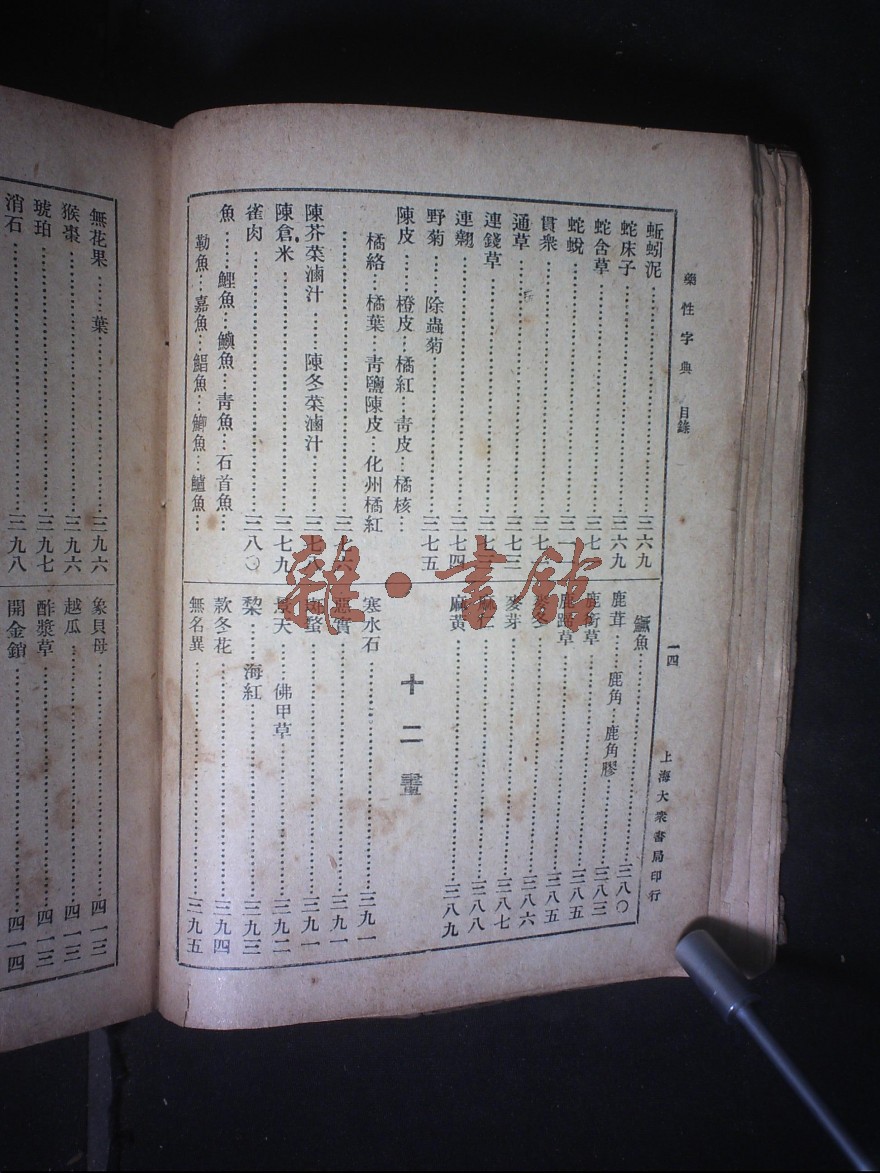 藥性字典　目錄
一四
上海大衆書局印行
蚯蚓泥……三六九
蛇床子……三六九
蛇含草……三七
蛇蛻……三
貫衆……三七
通草……三七
連錢草……三七三
連翹……三七四
野菊……除蟲菊……三七五
陳皮……橙皮…橘紅…青皮…橘核…
橘絡…橘葉…青鹽陳皮…化州橘紅
……三七六
陳芥菜滷汁……陳冬菜滷汁……三七八
陳倉米……三七九
雀肉……三八〇
魚……鯉魚…鱮魚…青魚…石首魚…
勒魚…嘉魚…鯧魚…鯽魚…鱸魚…
鱖魚……三八〇
鹿茸……鹿角…鹿角膠……三八三
鹿銜草……三八五
鹿蹄草……三八五
冬……三八六
麥芽……三八七
仁……三八八
麻黃……三八九
十二畫
寒水石……三九一
惡實……三九一
斑蝥……三九一
景天……佛甲草……三九二
梨……海紅……三九三
款冬花……三九四
無名異……三九五
無花果……葉……三九六
猴棗……三九六
琥珀……三九七
消石……三九八
象貝母……四一三
越瓜……四一三
酢漿草……四一三
開金鎖……四一四
雜·書館